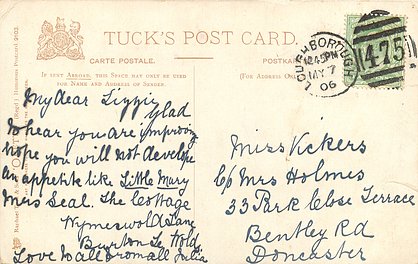 TUCK'S POST CARD.
CARTE POSTALE.
POSTKAR
IF SENT ABROAD, THIS SPACE MAY ONLY BE USED
FOR NAME AND ADDRESS OF SENDER.
(FOR ADDRESS ON
LOUGHBOROUGH
12.45PM
MY 7
06
475
My dear Lizzie
Glad
to hear you are improving
hope you will not develope
an appetite like Little Mary
Mrs Seal. The Cottage
Wymeswold Lane
Burton Le Wolds
Love to all from all Julia
Miss Vickers
c/o Mrs Holmes
33 Park Close Terrace
Bentley Rd
Doncaster